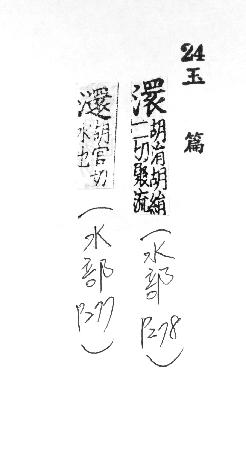 24 玉 篇
澴 胡胡絹
二切聚流
(水部 P278)
胡官切
水也
(水部 P277)